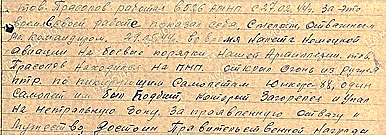 тов. Трасолов работая в 626 АПНП. с 27.02.44г. За это
время своей работе показал себя смелым, отважным
командиром. 29.05.44. во время налета немецкой
авиации на боевые порядки нашей артиллерии. тов.
Трасолов находясь на ПНП открыл огонь из ружья
птр. по пикирующим самолетам Юнкерс-88, один
самолет им был подбит, который загорелся и упал
на нейтральную зону. За проявленную отвагу и
мужество достоин Правительственной награды